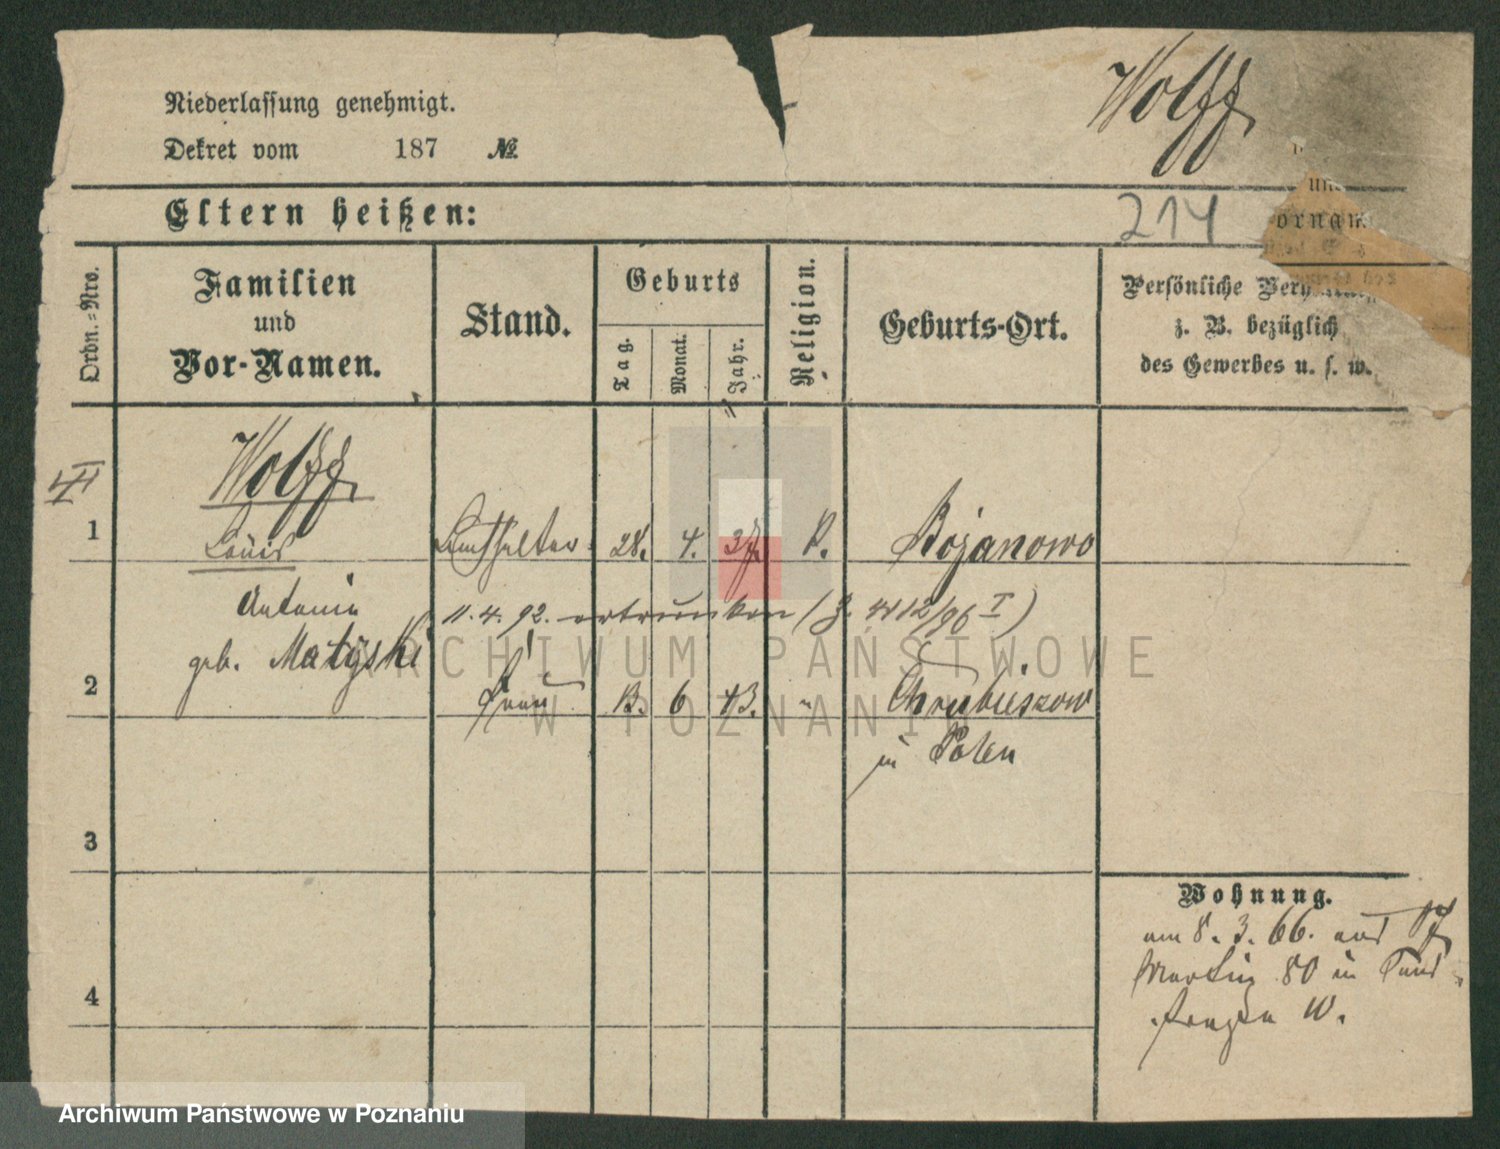 Niederlassung genehmigt.
Dekret vom 187 №
Wolff
Eltern heißen:
214
Ordn.=Nro.
Familien
und
Vor-Namen.
Stand.
Geburts
Tag.
Monat.
Jahr.
Religion.
Geburts-Ort.
Persönliche
z. B. bezüglich
des Gewerbes u. s. w.
Wolff
1 Louis 28. 4. 37. Bojanowo
Antonie 11. 4. 92. ertrunken
geb. Matyski
2 Frau 6 43. " Chrubieszow
in Polen
3
Wohnung.
am 8. 3. 66. aus
Martin 80 in
4
W.
ARCHIWUM PAŃSTWOWE
W POZNANIU
Archiwum Państwowe w Poznaniu